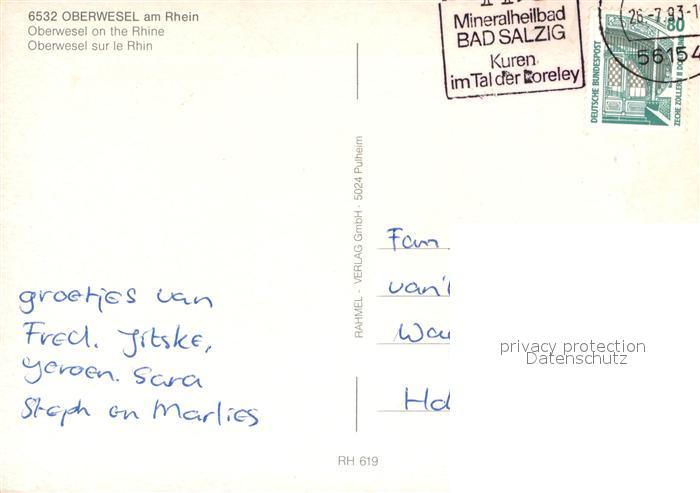 6532 OBERWESEL am Rhein
Oberwesel on the Rhine
Oberwesel sur le Rhin
Mineralheilbad
BAD SALZIG
Kuren
im Tal der Loreley
26.-7.93-1
56154
80
DEUTSCHE BUNDESPOST
ZECHE ZOLLERN II DO
RAHMEL - VERLAG GmbH · 5024 Pulheim
Fam
van't
privacy protection
Datenschutz
groetjes van
Fred. Jitske,
Jeroen. Sara
Steph en Marlies
RH 619